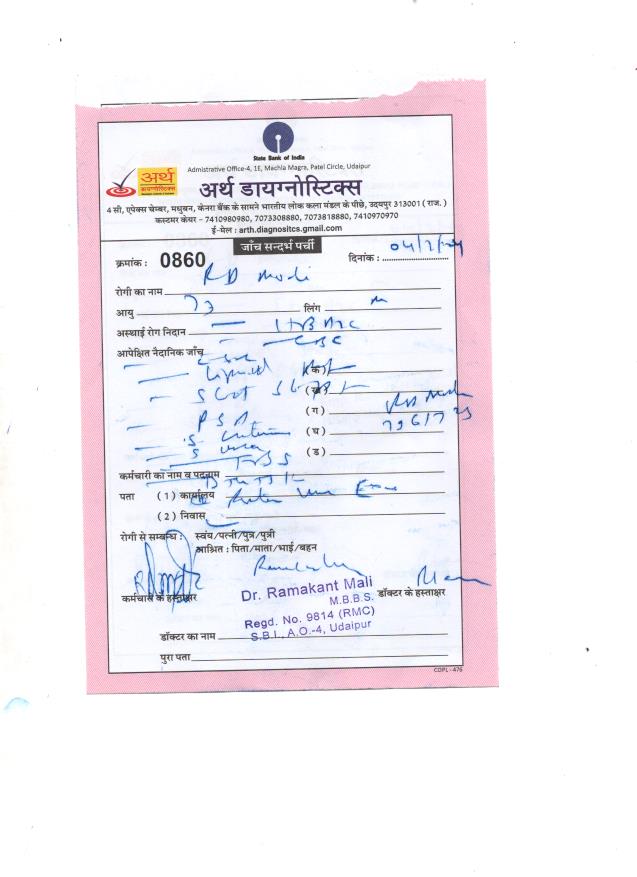 State Bank of India
Admistrative Office-4, 1E, Machla Magra, Patel Circle, Udaipur
अर्थ
डायग्नोस्टिक्स
अर्थ डायग्नोस्टिक्स
4 सी, एपेक्स चेम्बर, मधुबन, केनरा बैंक के सामने भारतीय लोक कला मंडल के पीछे, उदयपुर 313001 ( राज. )
कस्टमर केयर - 7410980980, 7073308880, 7073818880, 7410970970
ई-मेल : arth.diagnositcs.gmail.com
जाँच सन्दर्भ पर्ची
क्रमांक : 0860 दिनांक :
RD Modi
रोगी का नाम
आयु 73 लिंग M
अस्थाई रोग निदान HB A1c
CBC
आपेक्षित नैदानिक जाँच
Lipid (क)
SGOT SGPT (ख)
(ग) RD Modi
PSA (घ)
S creatinine
S urea (ड)
कर्मचारी का नाम व पदनाम
पता ( 1 ) कार्यालय
( 2 ) निवास
रोगी से सम्बन्ध : स्वंय/पत्नी/पुत्र/पुत्री
आश्रित : पिता/माता/भाई/बहन
कर्मचारी के हस्ताक्षर
Dr. Ramakant Mali
M.B.B.S. डॉक्टर के हस्ताक्षर
Regd. No. 9814 (RMC)
S.B.I., A.O.-4, Udaipur
डॉक्टर का नाम
पुरा पता
CDPL - 476